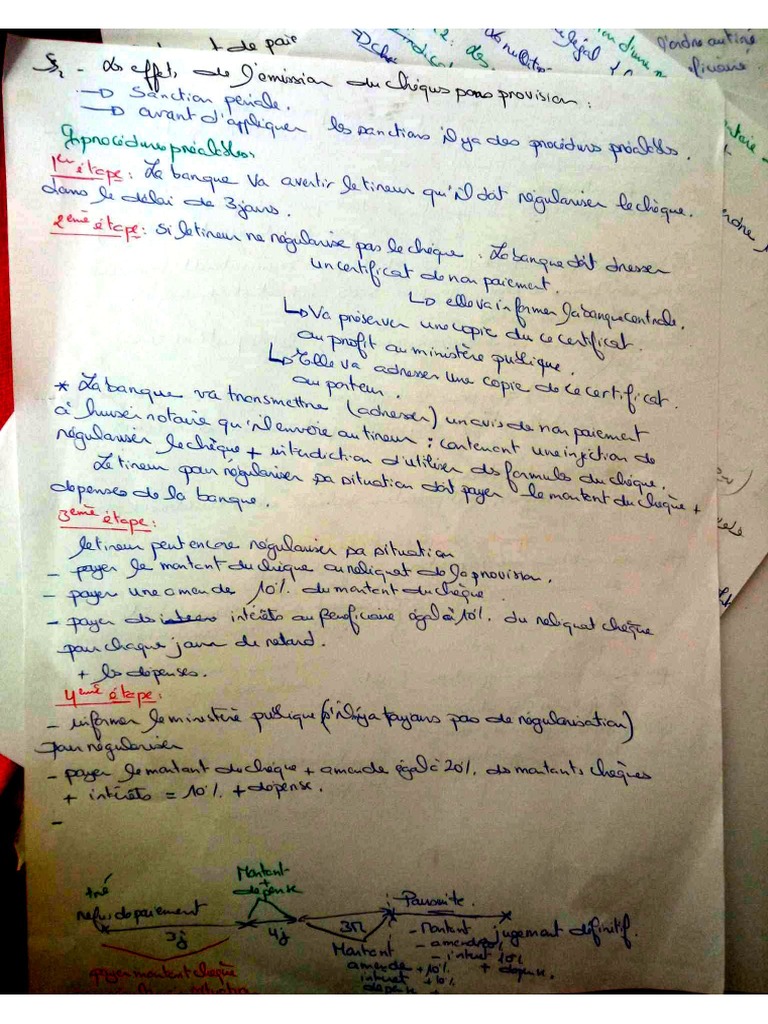 t de paie
§2 - Les effets de l'émission du chèques sans provision :
→ Sanction pénale.
→ avant d'appliquer les sanctions il y a des procédures préalables.
procédures préalables:
1er étape : La banque va avertir le tireur qu'il doit régulariser le chèque.
dans le délai de 3 jours.
2ème étape : si le tireur ne régularise pas le chèque. La banque doit dresser
un certificat de non paiement.
↳ elle va informer la banque centrale.
↳ Va préserver une copie du ce certificat.
au profit au ministère publique.
↳ Elle va adresser une copie de ce certificat.
au porteur.
* La banque va transmettre (adresser) un avis de non paiement
à huissier notaire qu'il envoie au tireur : contenant une injction de
régulariser le chèque + interdiction d'utiliser des formules du chèque.
Le tireur pour régulariser sa situation doit payer le montant du chèque +
depenses de la banque.
3ème étape :
le tireur peut encore régulariser sa situation
- payer le montant du chèque au reliquat de la provision.
- payer une amende 10% du montant du chèque
- payer des intérêts au beneficiaire égal à 10% du reliquat chèque
pour chaque jour de retard.
+ les dépenses.
4ème étape :
- informer le ministère publique (s'il n'y a pas de régularisation)
Pour régulariser
- payer le montant du chèque + amende égal à 20% des montants chèques
+ intérêts = 10% + depense.
-
Montant
+
depense
refus de paiement
3j
4j
3m
payer montant chèque
Montant
amende + 10%
interet + 10%
depense +
- Montant
- amende 20%
- intret 10%
+ depense.
jugement définitif.